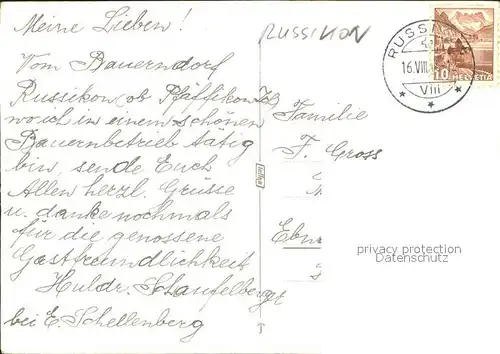 Meine Lieben!
Vom Bauerndorf
Russikon ob Pfäffikon Zch
wo ich in einem schönen
Bauernbetrieb tätig
bin, sende Euch
Allen herzl. Grüsse
u. danke nochmals
für die genossene
Gastfreundlichkeit
Huldr. Schaufelberger
bei E. Schellenberg
RUSSIKON
RUSSIKON
16.VIII.
VIII
10 HELVETIA
Familie
F. Gross
privacy protection
Datenschutz